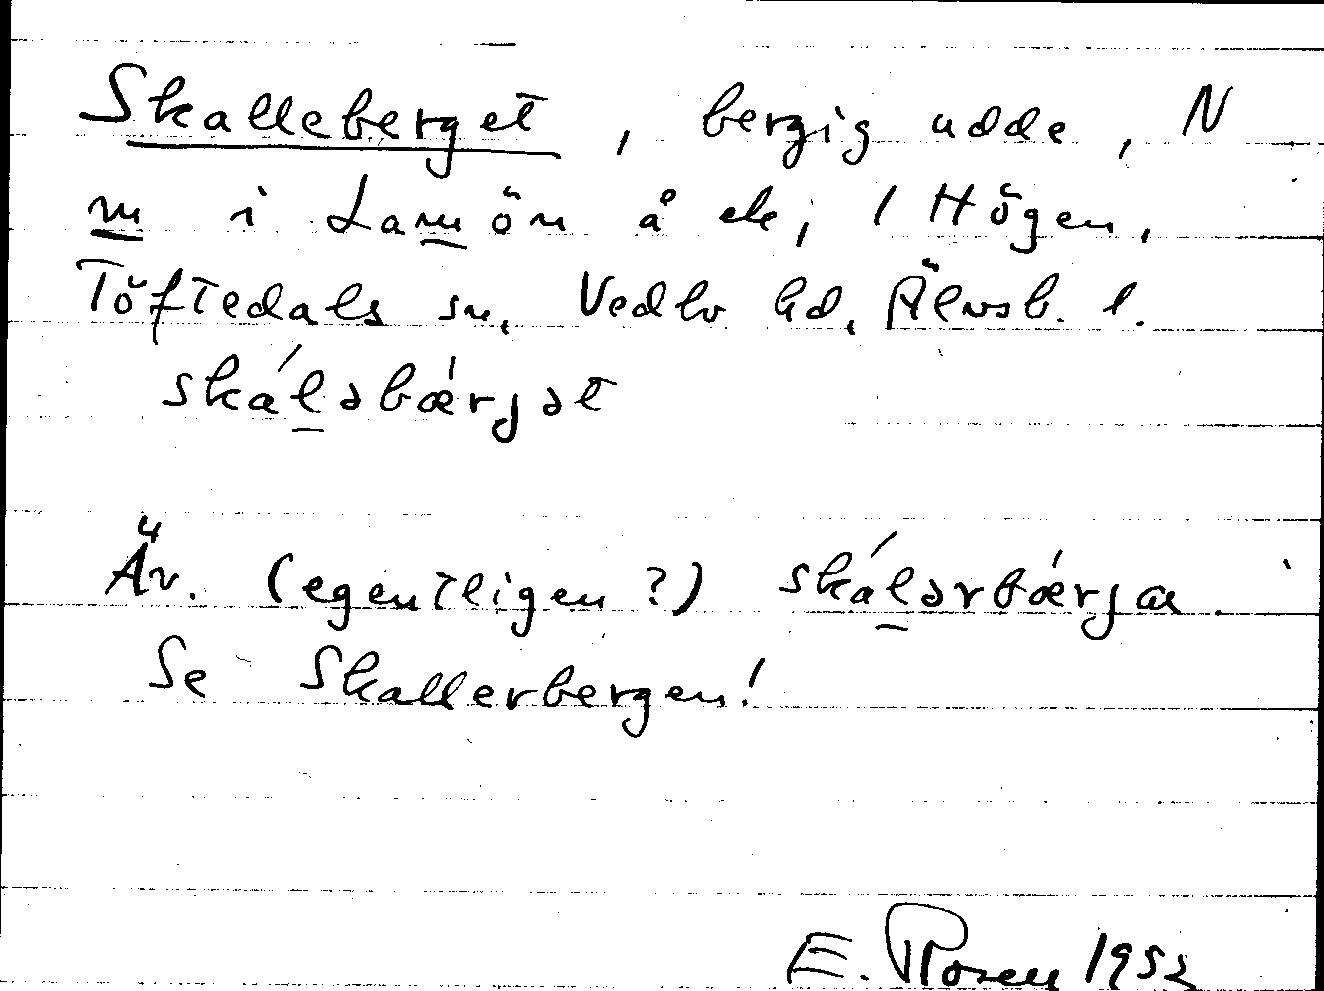 Skalleberget, bergig udde, N
m i Lamön å ek; 1 Högen,
Töftedals sn, Vedbo hd, Älvsb. l.
skáləbǽrjət
Äv. (egentligen?) skálərbǽrja.
Se Skallerbergen!
E. Rosen 1952